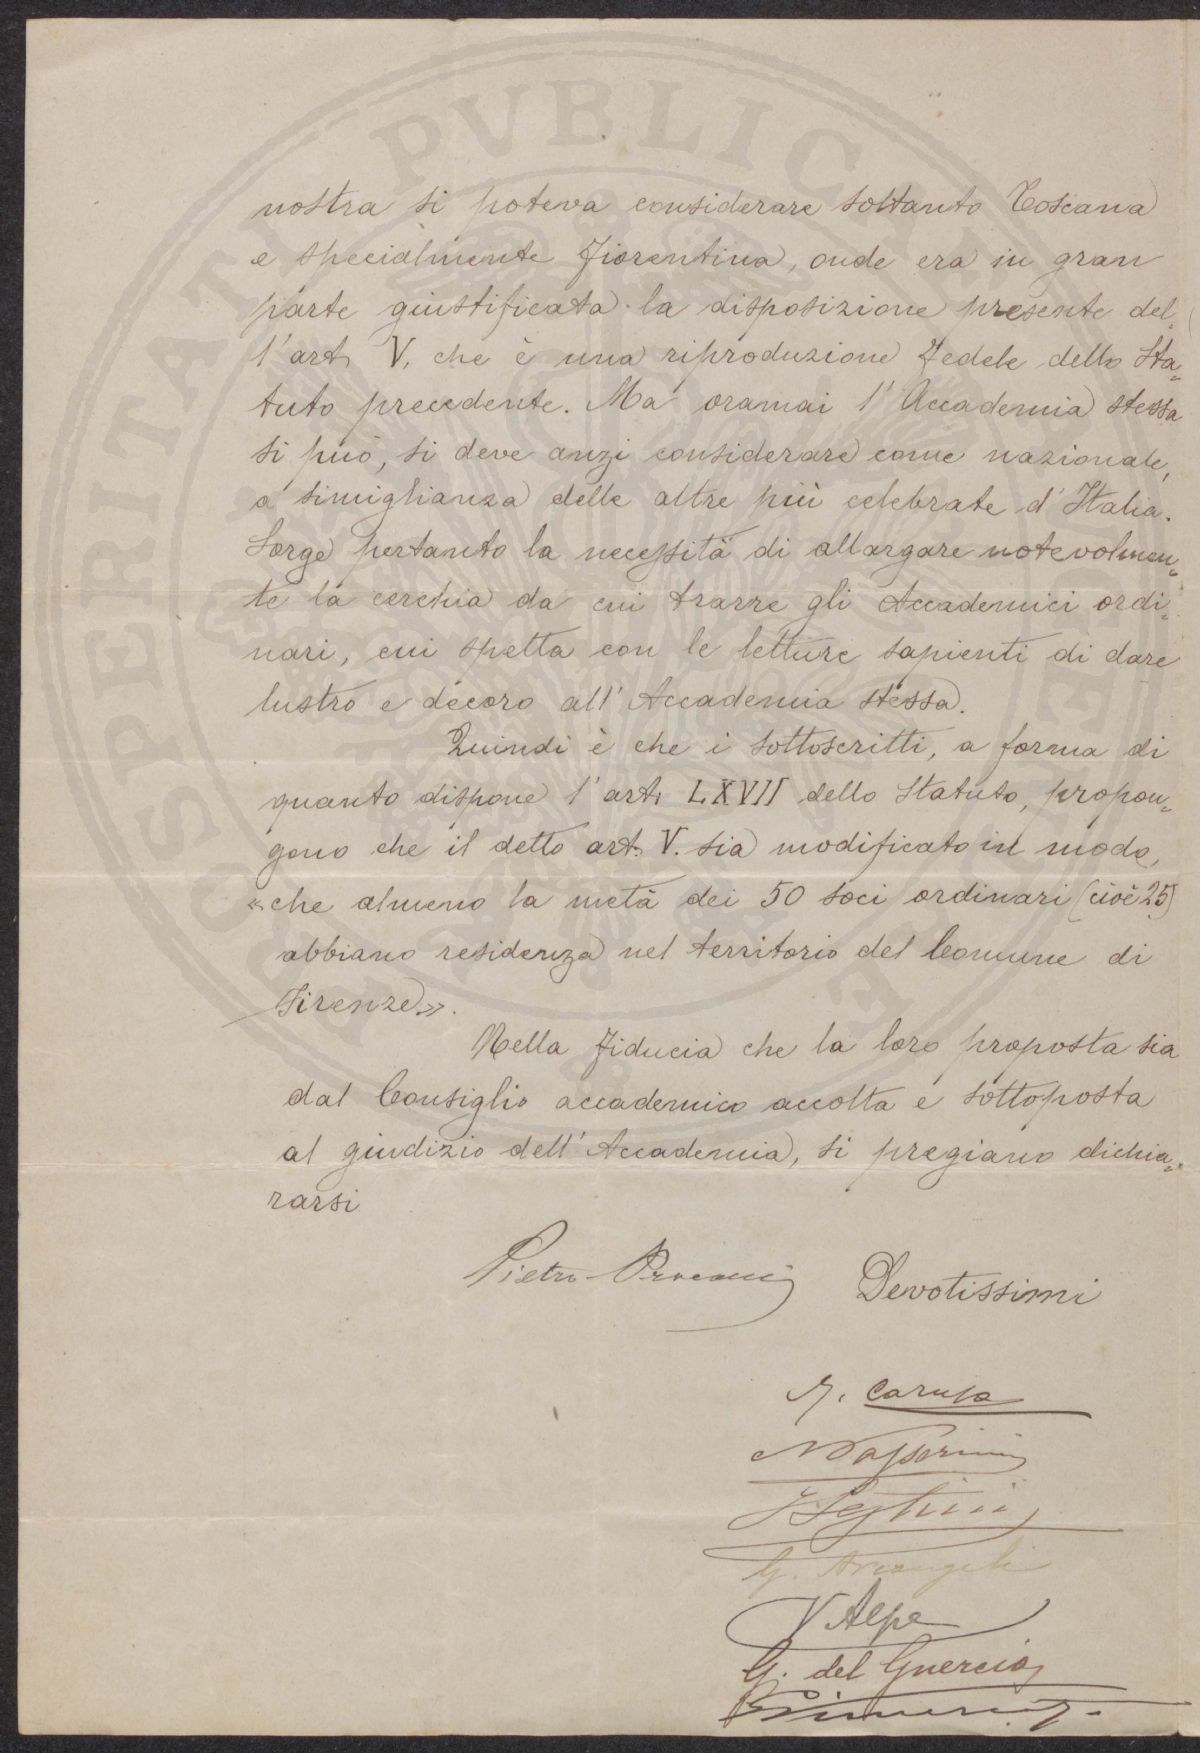 nostra si poteva considerare soltanto Toscana
e specialmente Fiorentina, onde era in gran
parte giustificata la disposizione presente del
l'art. V, che è una riproduzione fedele dello Sta=
tuto precedente. Ma oramai l'Accademia stessa
si può, si deve anzi considerare come nazionale,
a simiglianza delle altre più celebrate d'Italia.
Sorge pertanto la necessità di allargare notevolmen=
te la cerchia da cui trarre gli Accademici ordi=
nari, cui spetta con le letture sapienti di dare
lustro e decoro all'Accademia stessa.
Quindi è che i sottoscritti, a forma di
quanto dispone l'art. LXVII dello Statuto, propon=
gono che il detto art. V. sia modificato in modo,
«che almeno la metà dei 50 soci ordinari (cioè 25)
abbiano residenza nel territorio del Comune di
Firenze».
Nella fiducia che la loro proposta sia
dal Consiglio accademico accolta e sottoposta
al giudizio dell'Accademia, si pregiano dichia=
rarsi
Pietro Devotissimi
Caruso
N Passerini
G. Arcangeli
V Alpe
G. del Guercio